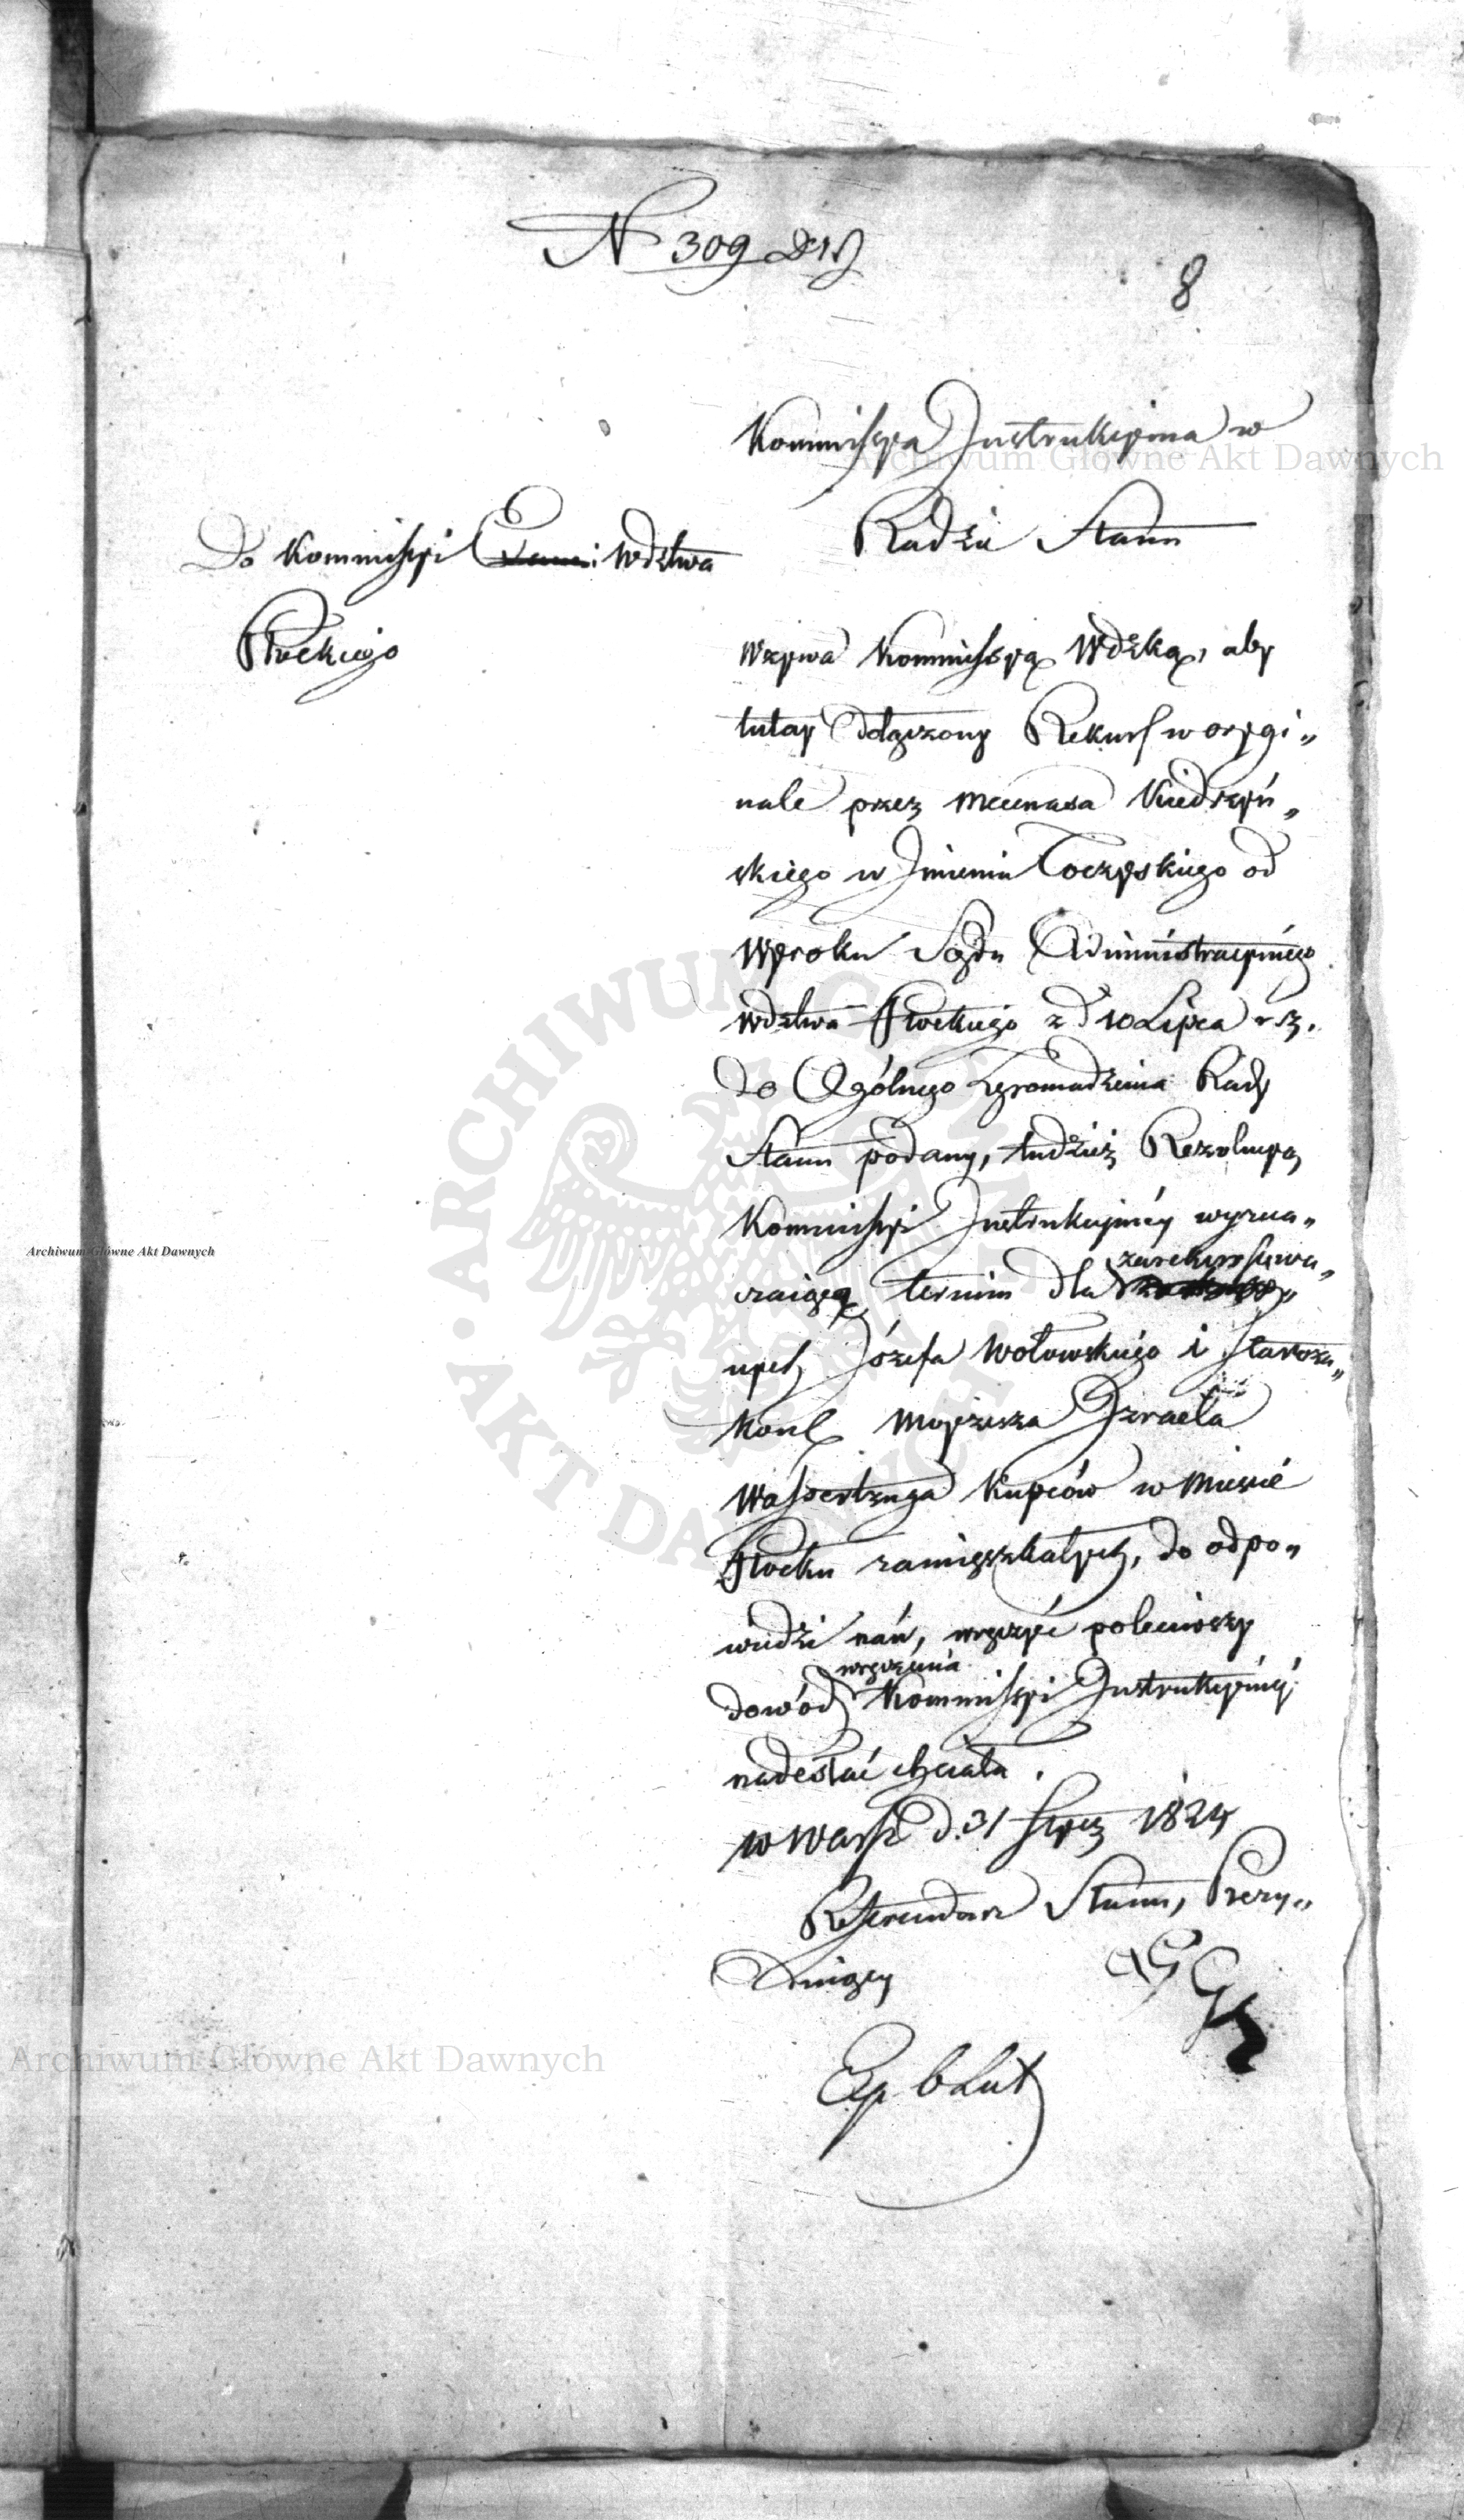 N 309
8
Kommissya Instrukcyina w
Radzie Stanu
Do Kommissyi Wdztwa
Płockiego
Wzywa Kommissyą Wdzką, aby
tutay dołączony Rekurs w orygi„
nale przez Mecenasa Kiedrzyń„
skiego w Imieniu Toczyskiego od
Wyroku Sądu Administracyinego
Wdztwa Płockiego z d 10 Lipca r. z.
do Ogólnego Zgromadzenia Rady
Stanu podany, tudzież Rezolucyą
Kommissyi Instrukcyiney wyzna„
czaiącą termin dla zarekursowa„
nych Józefa Wołowskiego i Staroza„
kon Moyżesza Izraela
Wassertzuga Kupców w Mieście
Płocku zamięszkałych, do odpo„
wiedzi nań, wręczyć poleciwszy
dowód wręczenia Kommissyi Instrukcyiney
nadesłać chciała.
w Warsz d. 31 Stycz 1824
Referendarz Stanu, Prezy„
duiący
Archiwum Główne Akt Dawnych
Archiwum Główne Akt Dawnych
Archiwum Główne Akt Dawnych
ARCHIWUM GŁÓWNE AKT DAWNYCH